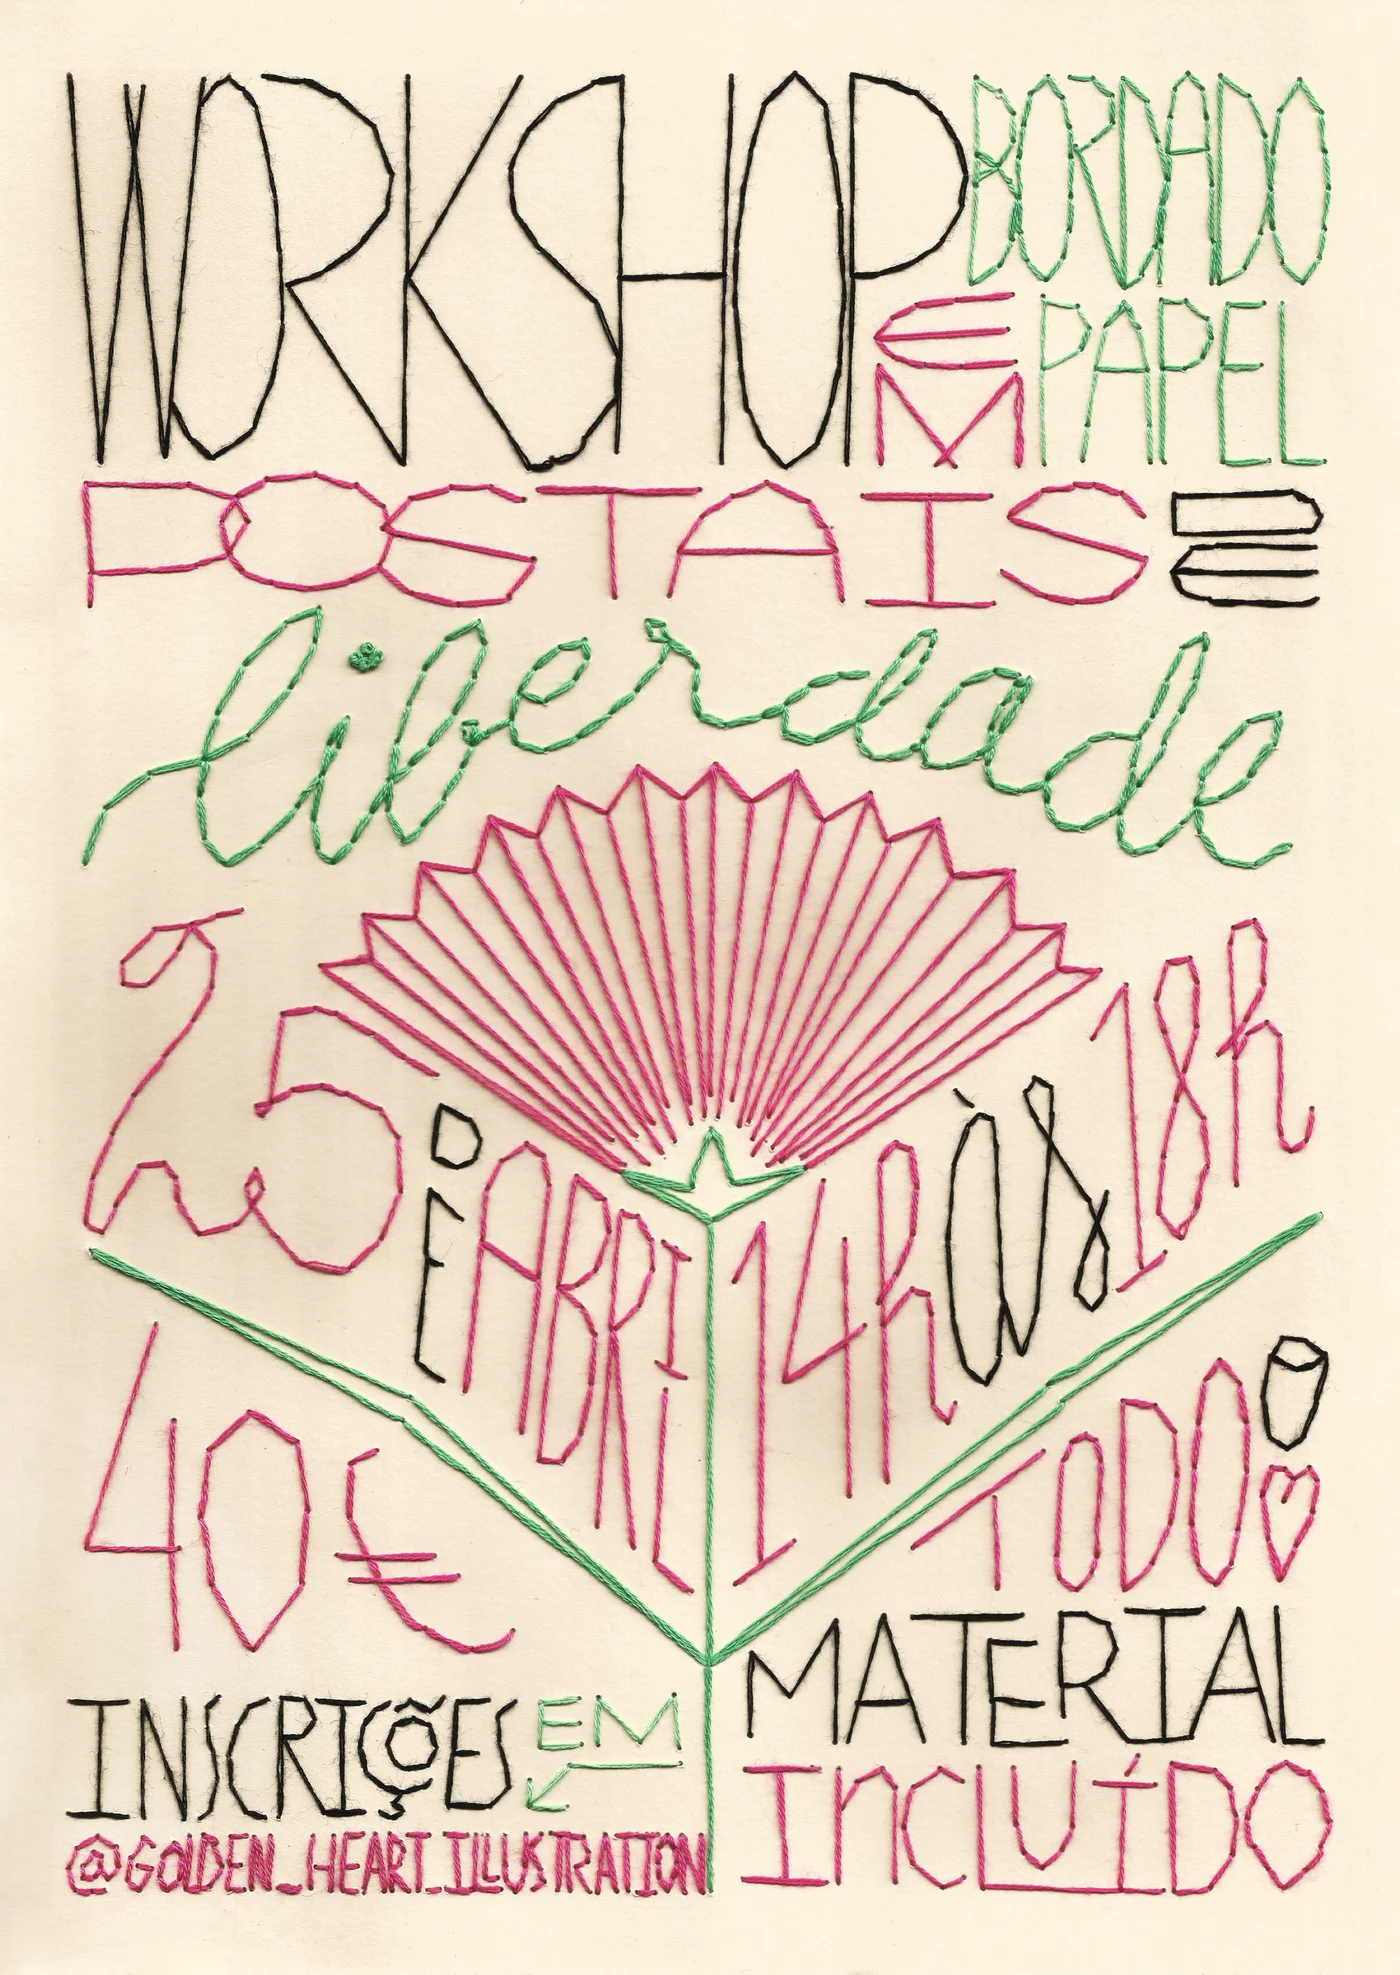 WORKSHOP BORDADO
EM PAPEL
POSTAIS DE
liberdade
25 DE ABRIL 14h ÀS 18h
40€
TODO O
MATERIAL
INCLUÍDO
INSCRIÇÕES EM
@GOLDEN_HEART_ILLUSTRATION